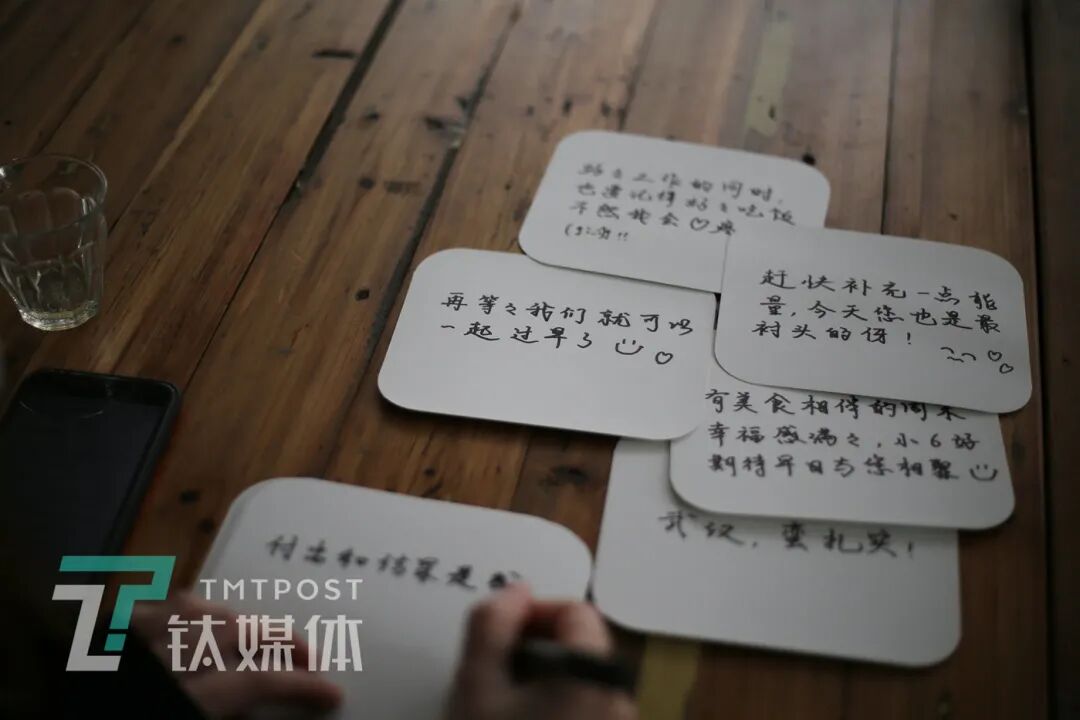 好々工作的同时，
也要记得好々吃饭
不然我会♡疼
再等々我们就可以
一起过早了
赶快补充一点能
量，今天您也是最
衬头的伢！
有美食相伴的周末
幸福感满々，小6好
期待早日与您相聚
武汉，蛮扎实！
付出和结果是
TMTPOST
钛媒体